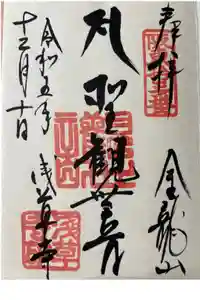 奉拝
金龍山
聖観世音
令和五年
十二月十日
浅草寺